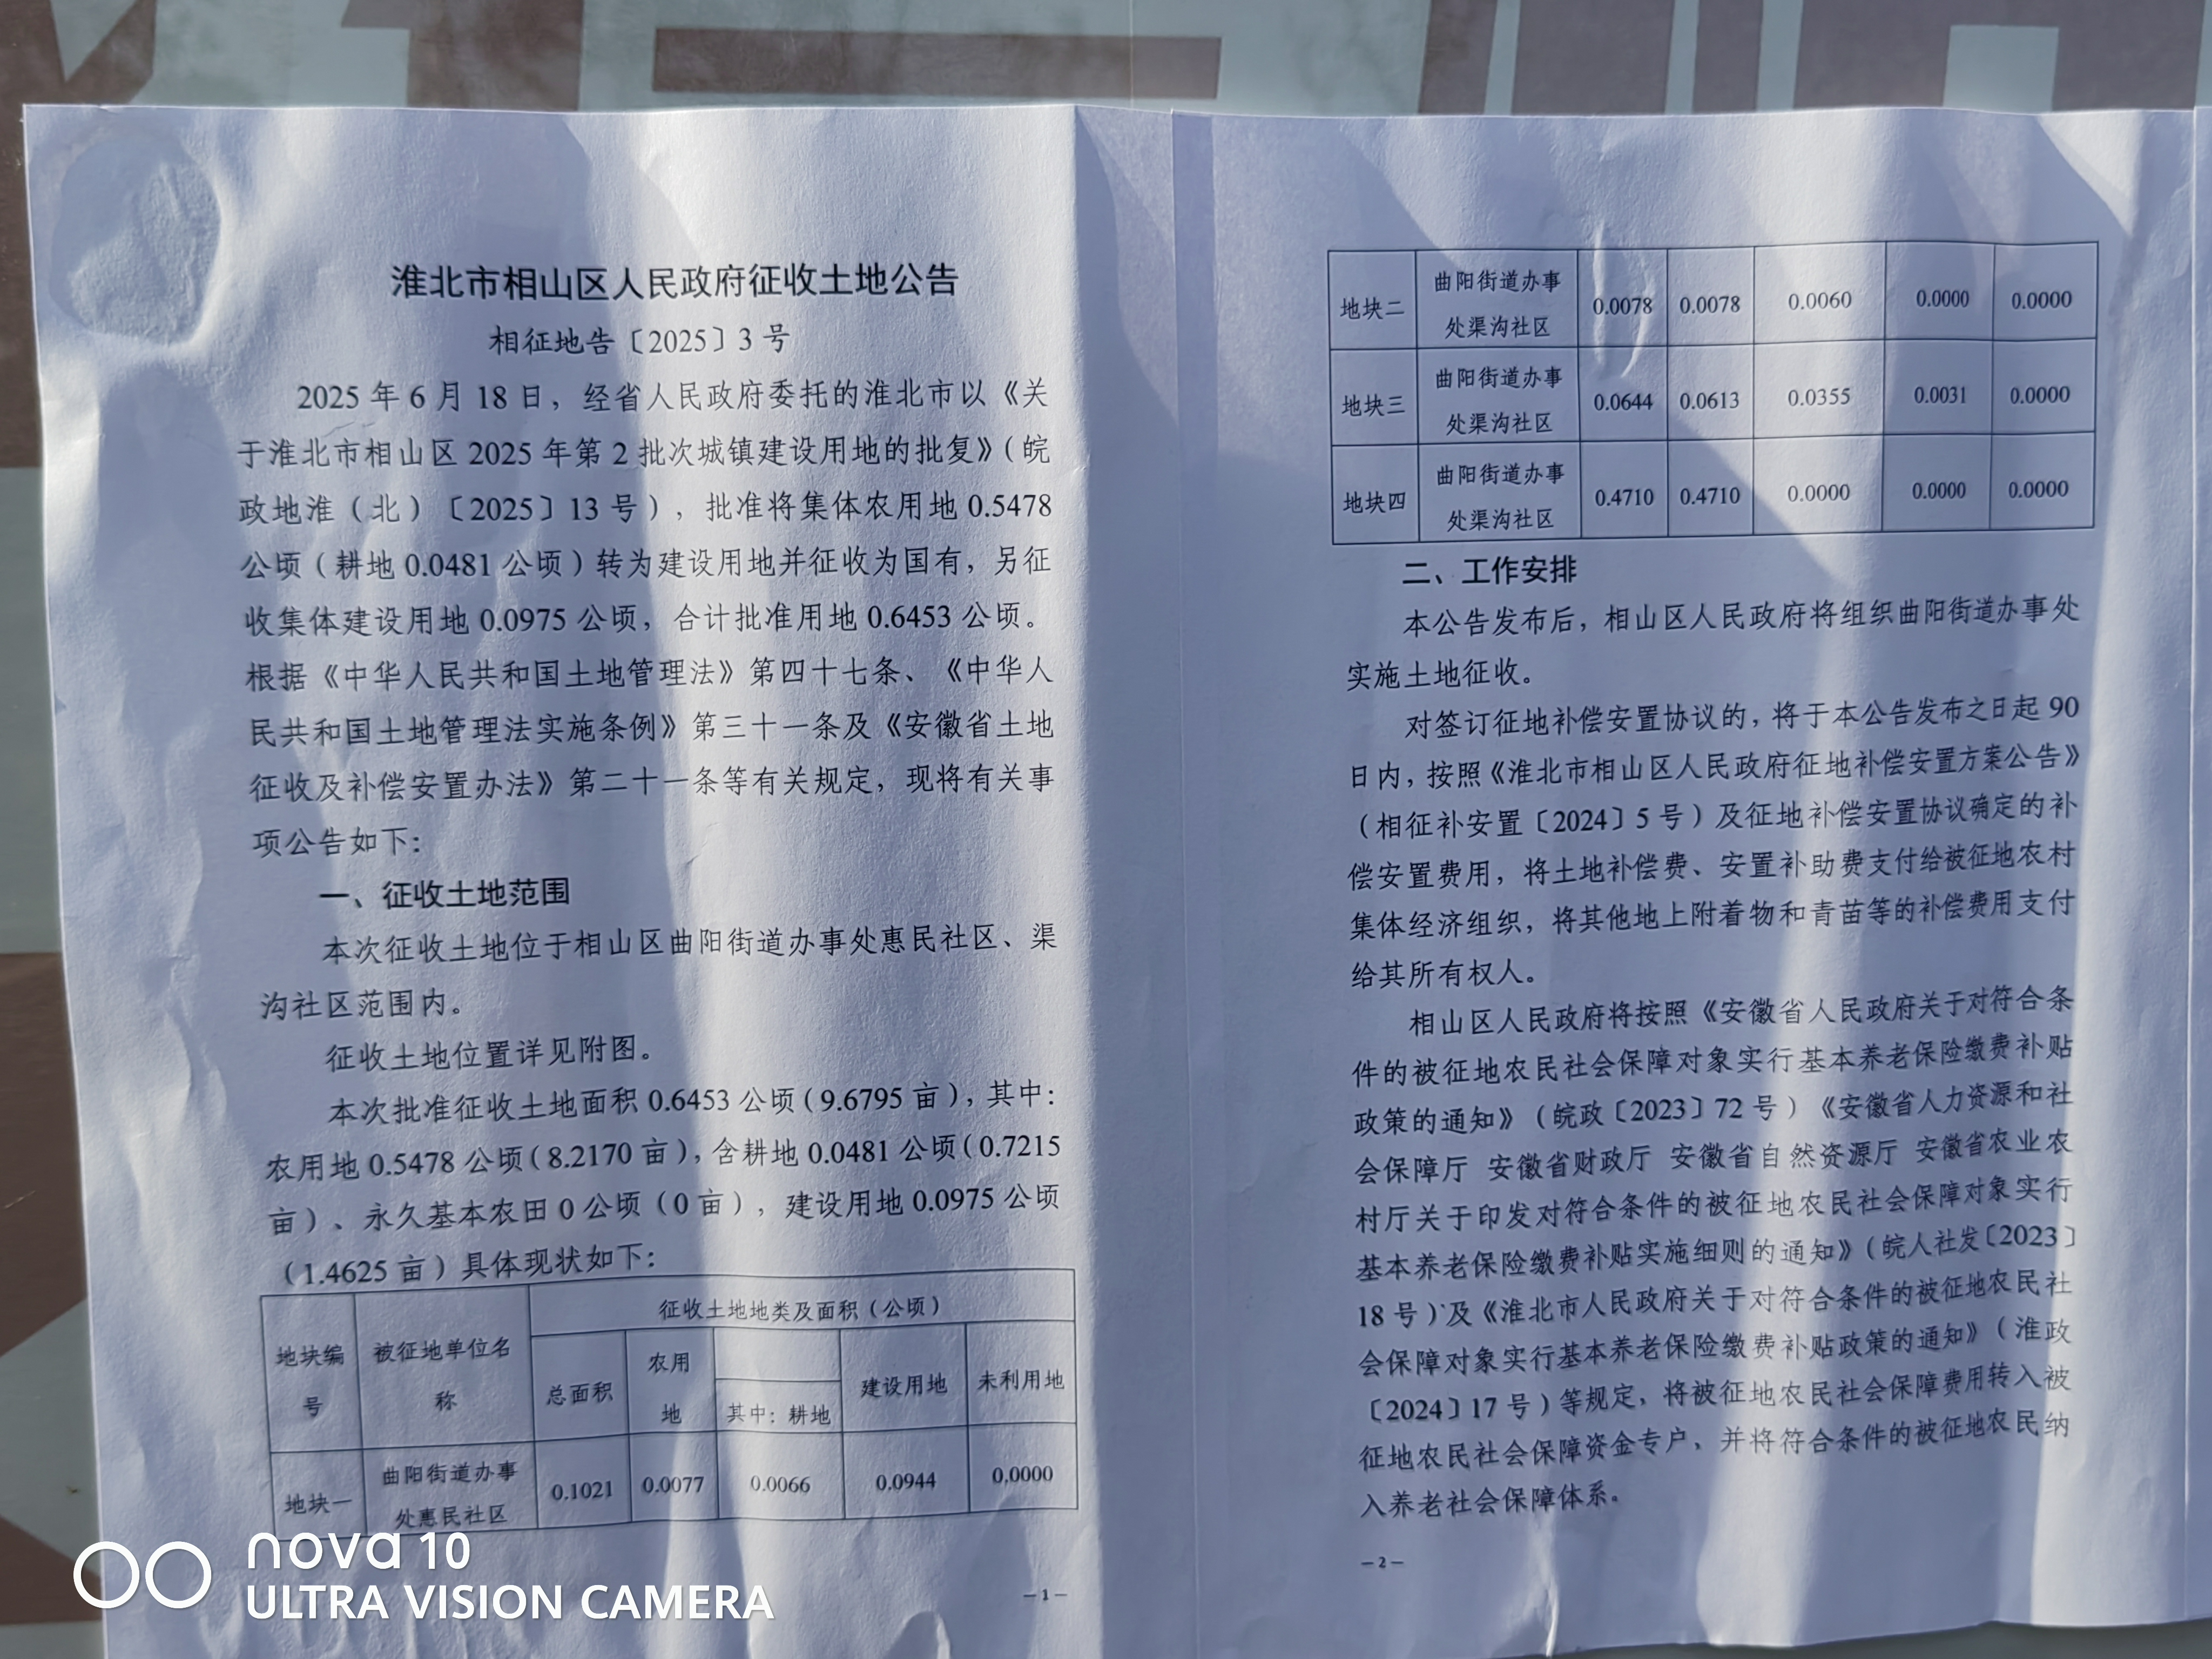 淮北市相山区人民政府征收土地公告
相征地告〔2025〕3 号
2025 年 6 月 18 日，经省人民政府委托的淮北市以《关
于淮北市相山区 2025 年第 2 批次城镇建设用地的批复》（皖
政地淮（北）〔2025〕13 号），批准将集体农用地 0.5478
公顷（耕地 0.0481 公顷）转为建设用地并征收为国有，另征
收集体建设用地 0.0975 公顷，合计批准用地 0.6453 公顷。
根据《中华人民共和国土地管理法》第四十七条、《中华人
民共和国土地管理法实施条例》第三十一条及《安徽省土地
征收及补偿安置办法》第二十一条等有关规定，现将有关事
项公告如下：
一、征收土地范围
本次征收土地位于相山区曲阳街道办事处惠民社区、渠
沟社区范围内。
征收土地位置详见附图。
本次批准征收土地面积 0.6453 公顷（9.6795 亩），其中：
农用地 0.5478 公顷（8.2170 亩），含耕地 0.0481 公顷（0.7215
亩）、永久基本农田 0 公顷（0 亩），建设用地 0.0975 公顷
（1.4625 亩）具体现状如下：
地块编号 被征地单位名称 征收土地地类及面积（公顷）
总面积 农用地 其中：耕地 建设用地 未利用地
地块一 曲阳街道办事处惠民社区 0.1021 0.0077 0.0066 0.0944 0.0000
— 1 —
地块二 曲阳街道办事处渠沟社区 0.0078 0.0078 0.0060 0.0000 0.0000
地块三 曲阳街道办事处渠沟社区 0.0644 0.0613 0.0355 0.0031 0.0000
地块四 曲阳街道办事处渠沟社区 0.4710 0.4710 0.0000 0.0000 0.0000
二、工作安排
本公告发布后，相山区人民政府将组织曲阳街道办事处
实施土地征收。
对签订征地补偿安置协议的，将于本公告发布之日起 90
日内，按照《淮北市相山区人民政府征地补偿安置方案公告》
（相征补安置〔2024〕5 号）及征地补偿安置协议确定的补
偿安置费用，将土地补偿费、安置补助费支付给被征地农村
集体经济组织，将其他地上附着物和青苗等的补偿费用支付
给其所有权人。
相山区人民政府将按照《安徽省人民政府关于对符合条
件的被征地农民社会保障对象实行基本养老保险缴费补贴
政策的通知》（皖政〔2023〕72 号）《安徽省人力资源和社
会保障厅 安徽省财政厅 安徽省自然资源厅 安徽省农业农
村厅关于印发对符合条件的被征地农民社会保障对象实行
基本养老保险缴费补贴实施细则的通知》（皖人社发〔2023〕
18 号）及《淮北市人民政府关于对符合条件的被征地农民社
会保障对象实行基本养老保险缴费补贴政策的通知》（淮政
〔2024〕17 号）等规定，将被征地农民社会保障费用转入被
征地农民社会保障资金专户，并将符合条件的被征地农民纳
入养老社会保障体系。
— 2 —
nova 10
ULTRA VISION CAMERA